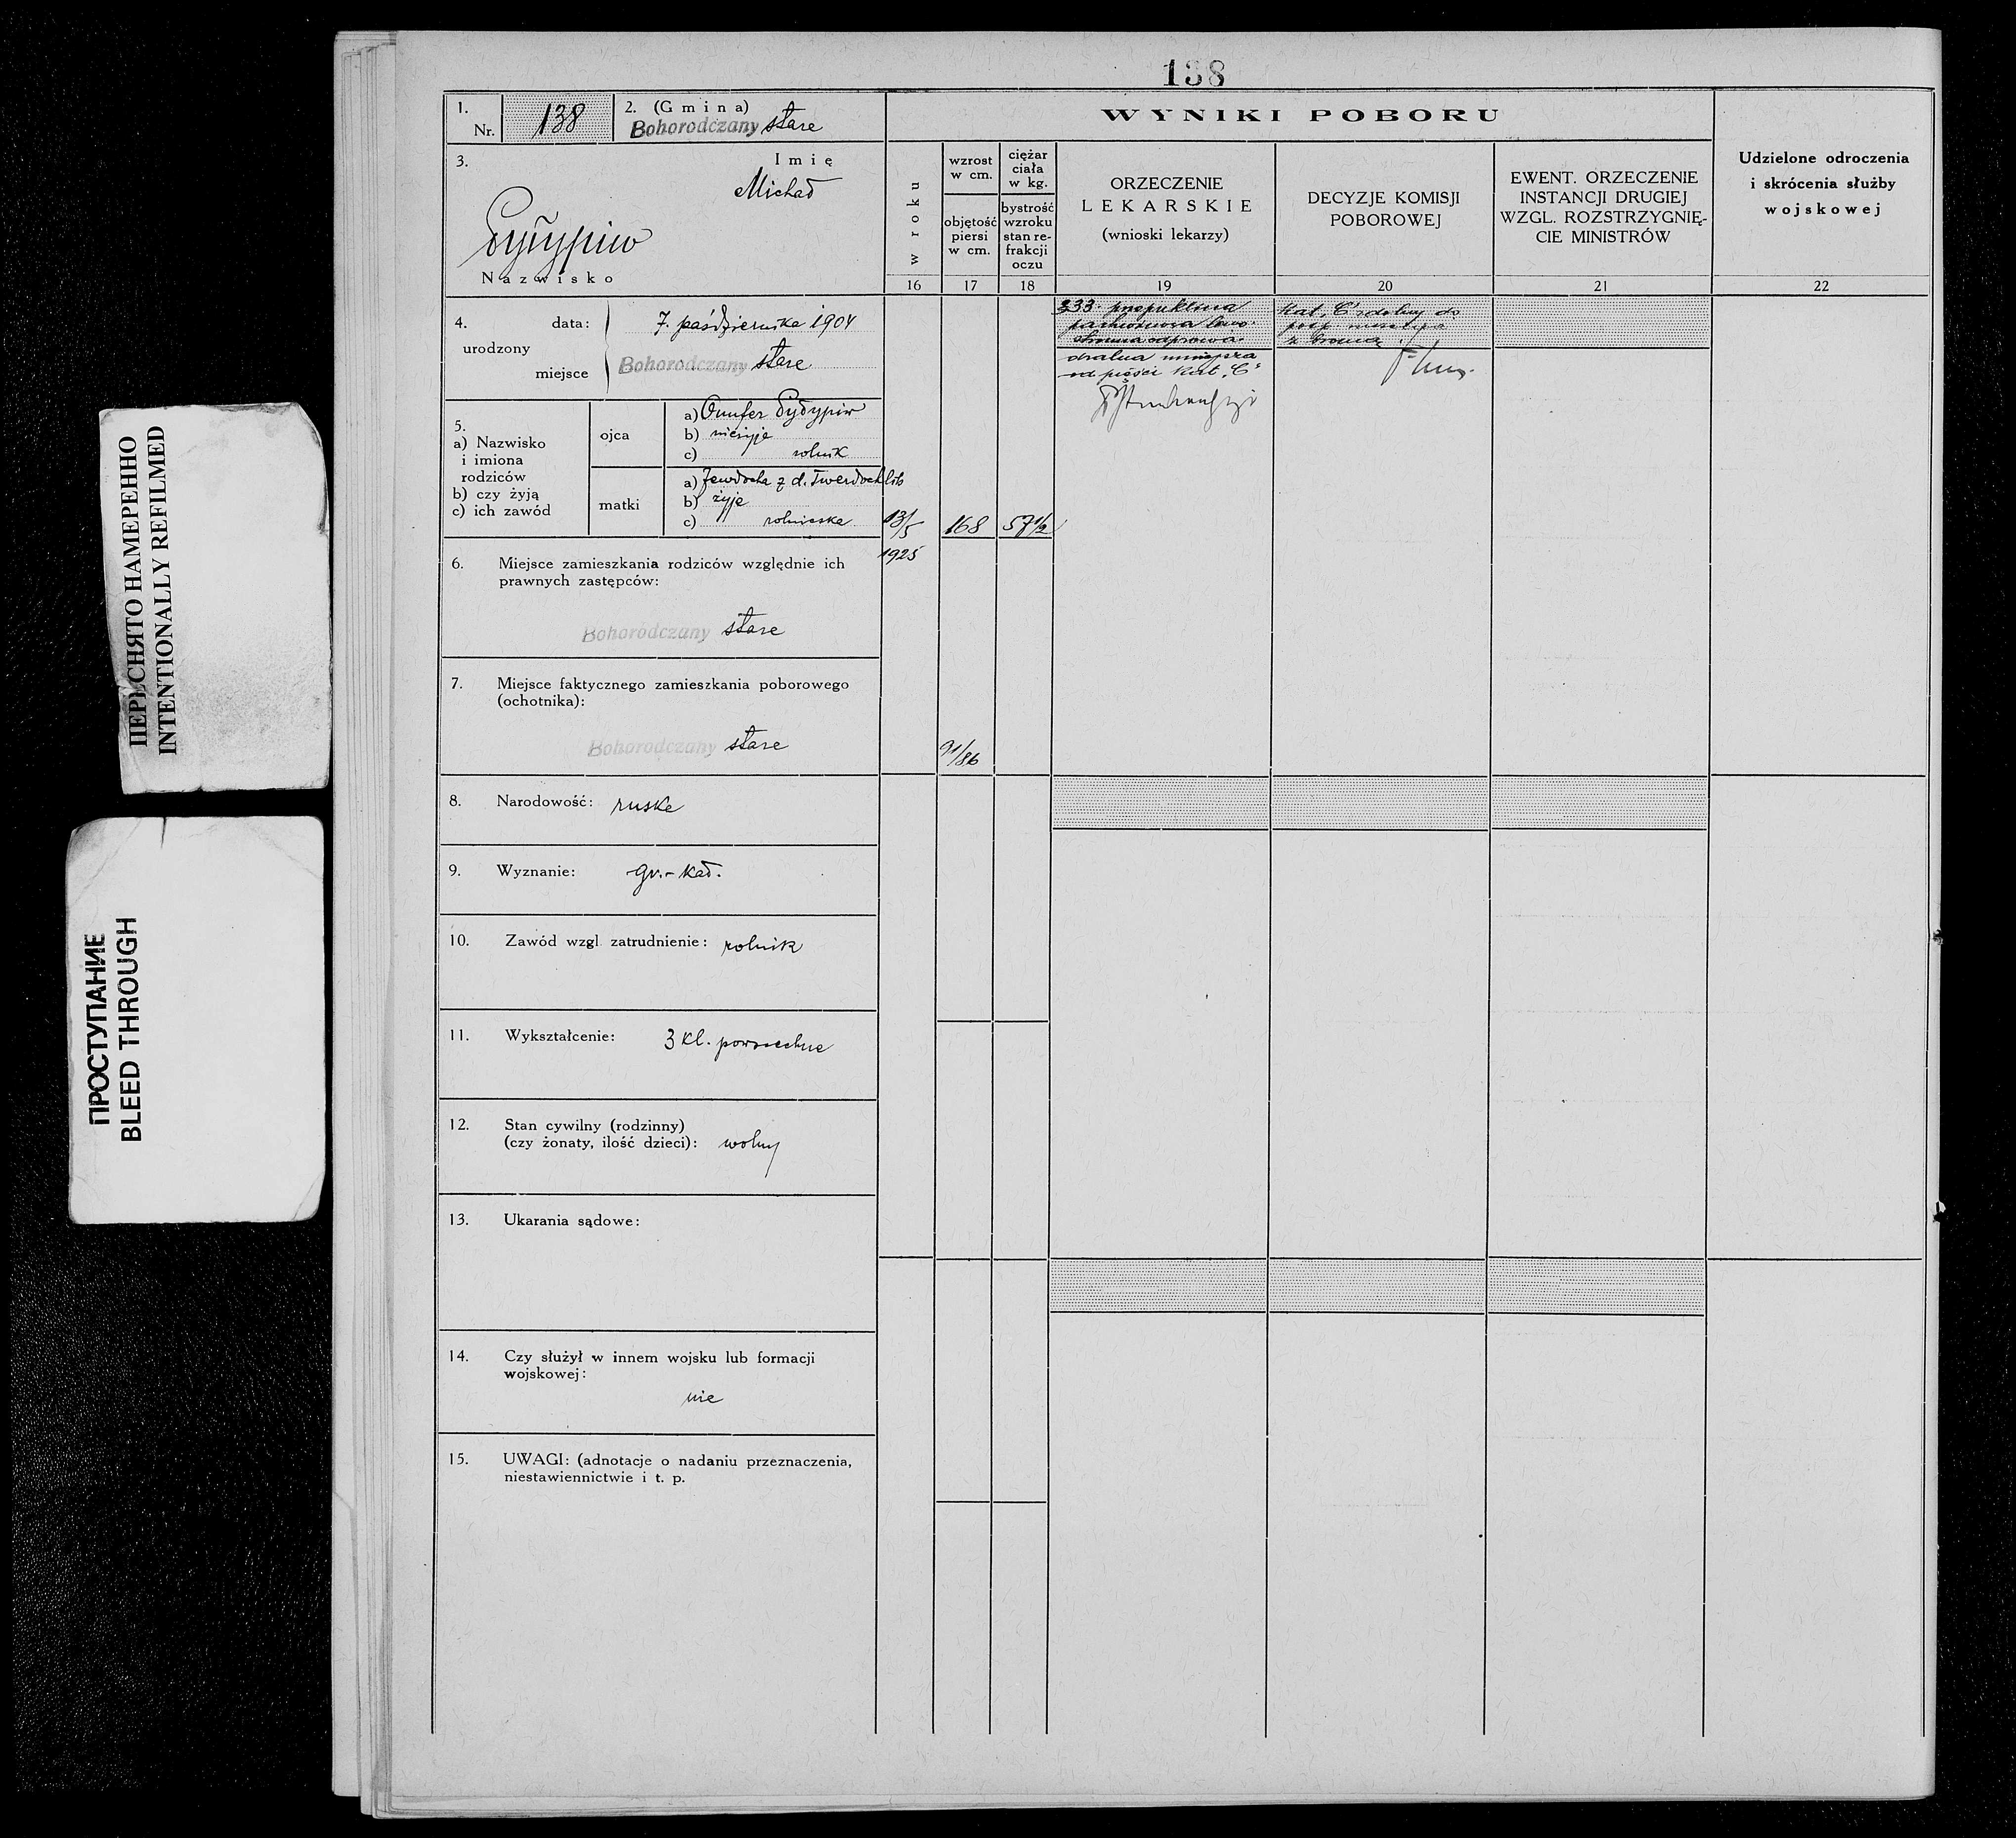 138
1.
Nr. 138
2. (Gmina)
Bohorodczany stare
3.
Imię
Michał
Dydypiw
Nazwisko
4.
urodzony
data: 7. października 1904
miejsce Bohorodczany stare
5.
a) Nazwisko
i imiona
rodziców
b) czy żyją
c) ich zawód
ojca
a) Onufer Dydypiw
b) nieżyje
c) rolnik
matki
a) Jewdocha z d. Twerdochlib
b) żyje
c) rolniczka
6. Miejsce zamieszkania rodziców względnie ich
prawnych zastępców:
Bohorodczany stare
7. Miejsce faktycznego zamieszkania poborowego
(ochotnika):
Bohorodczany stare
8. Narodowość: ruska
9. Wyznanie: gr.-kat.
10. Zawód wzgl. zatrudnienie: rolnik
11. Wykształcenie: 3 kl. powszechne
12. Stan cywilny (rodzinny)
(czy żonaty, ilość dzieci): wolny
13. Ukarania sądowe:
14. Czy służył w innem wojsku lub formacji
wojskowej:
nie
15. UWAGI: (adnotacje o nadaniu przeznaczenia,
niestawiennictwie i t. p.
WYNIKI POBORU
w roku
16
wzrost
w cm.
objętość
piersi
w cm.
17
ciężar
ciała
w kg.
bystrość
wzroku
stan re-
frakcji
oczu
18
ORZECZENIE
LEKARSKIE
(wnioski lekarzy)
19
DECYZJE KOMISJI
POBOROWEJ
20
EWENT. ORZECZENIE
INSTANCJI DRUGIEJ
WZGL. ROZSTRZYGNIĘ-
CIE MINISTRÓW
21
Udzielone odroczenia
i skrócenia służby
wojskowej
22
13/5
1925
168
57 1/2
91/86
233. przepuklina
pachwinowa lewo-
stronna odprowa-
dzalna mniejsza
od pięści kat. "C"
Kat. C zdolny do
posp. ruszenia
z bronią
ПЕРЕСНЯТО НАМЕРЕННО
INTENTIONALLY REFILMED
ПРОСТУПАНИЕ
BLEED THROUGH